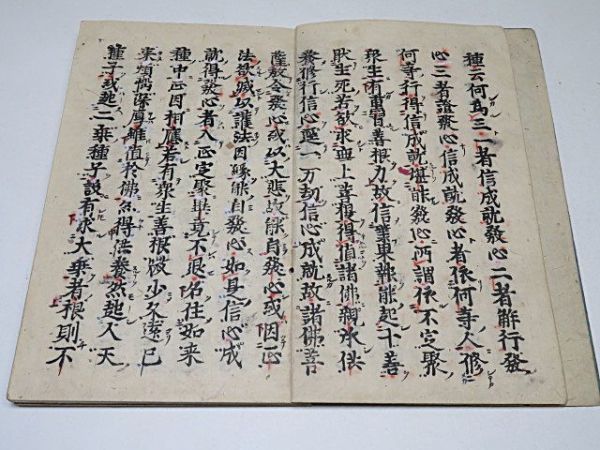 種云何為三一者信成就發心二者解行發
心三者證發心信成就發心者依何等人修
何等行得信成就堪能發心所謂依不定聚
衆生有熏習善根力故信業果報能起十善
厭生死苦欲求無上菩提得值諸佛親承供
養修行信心逕一万劫信心成就故諸佛菩
薩教令發心或以大悲故能自發心或因正
法欲滅以護法因緣能自發心如是信心成
就得發心者入正定聚畢竟不退名住如来
種中正因相應若有衆生善根微少久遠已
来煩惱深厚雖值於佛亦得供養然起人天
種子或起二乘種子設有求大乘者根則不